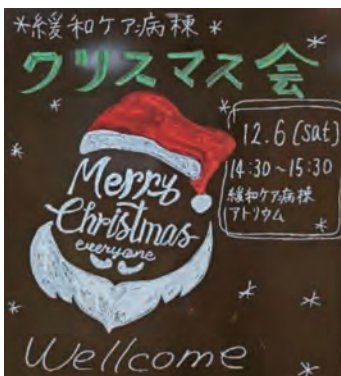 *緩和ケア病棟*
クリスマス会
12.6 (sat)
14:30~15:30
緩和ケア病棟
アトリウム
Merry
Christmas
everyone
Wellcome